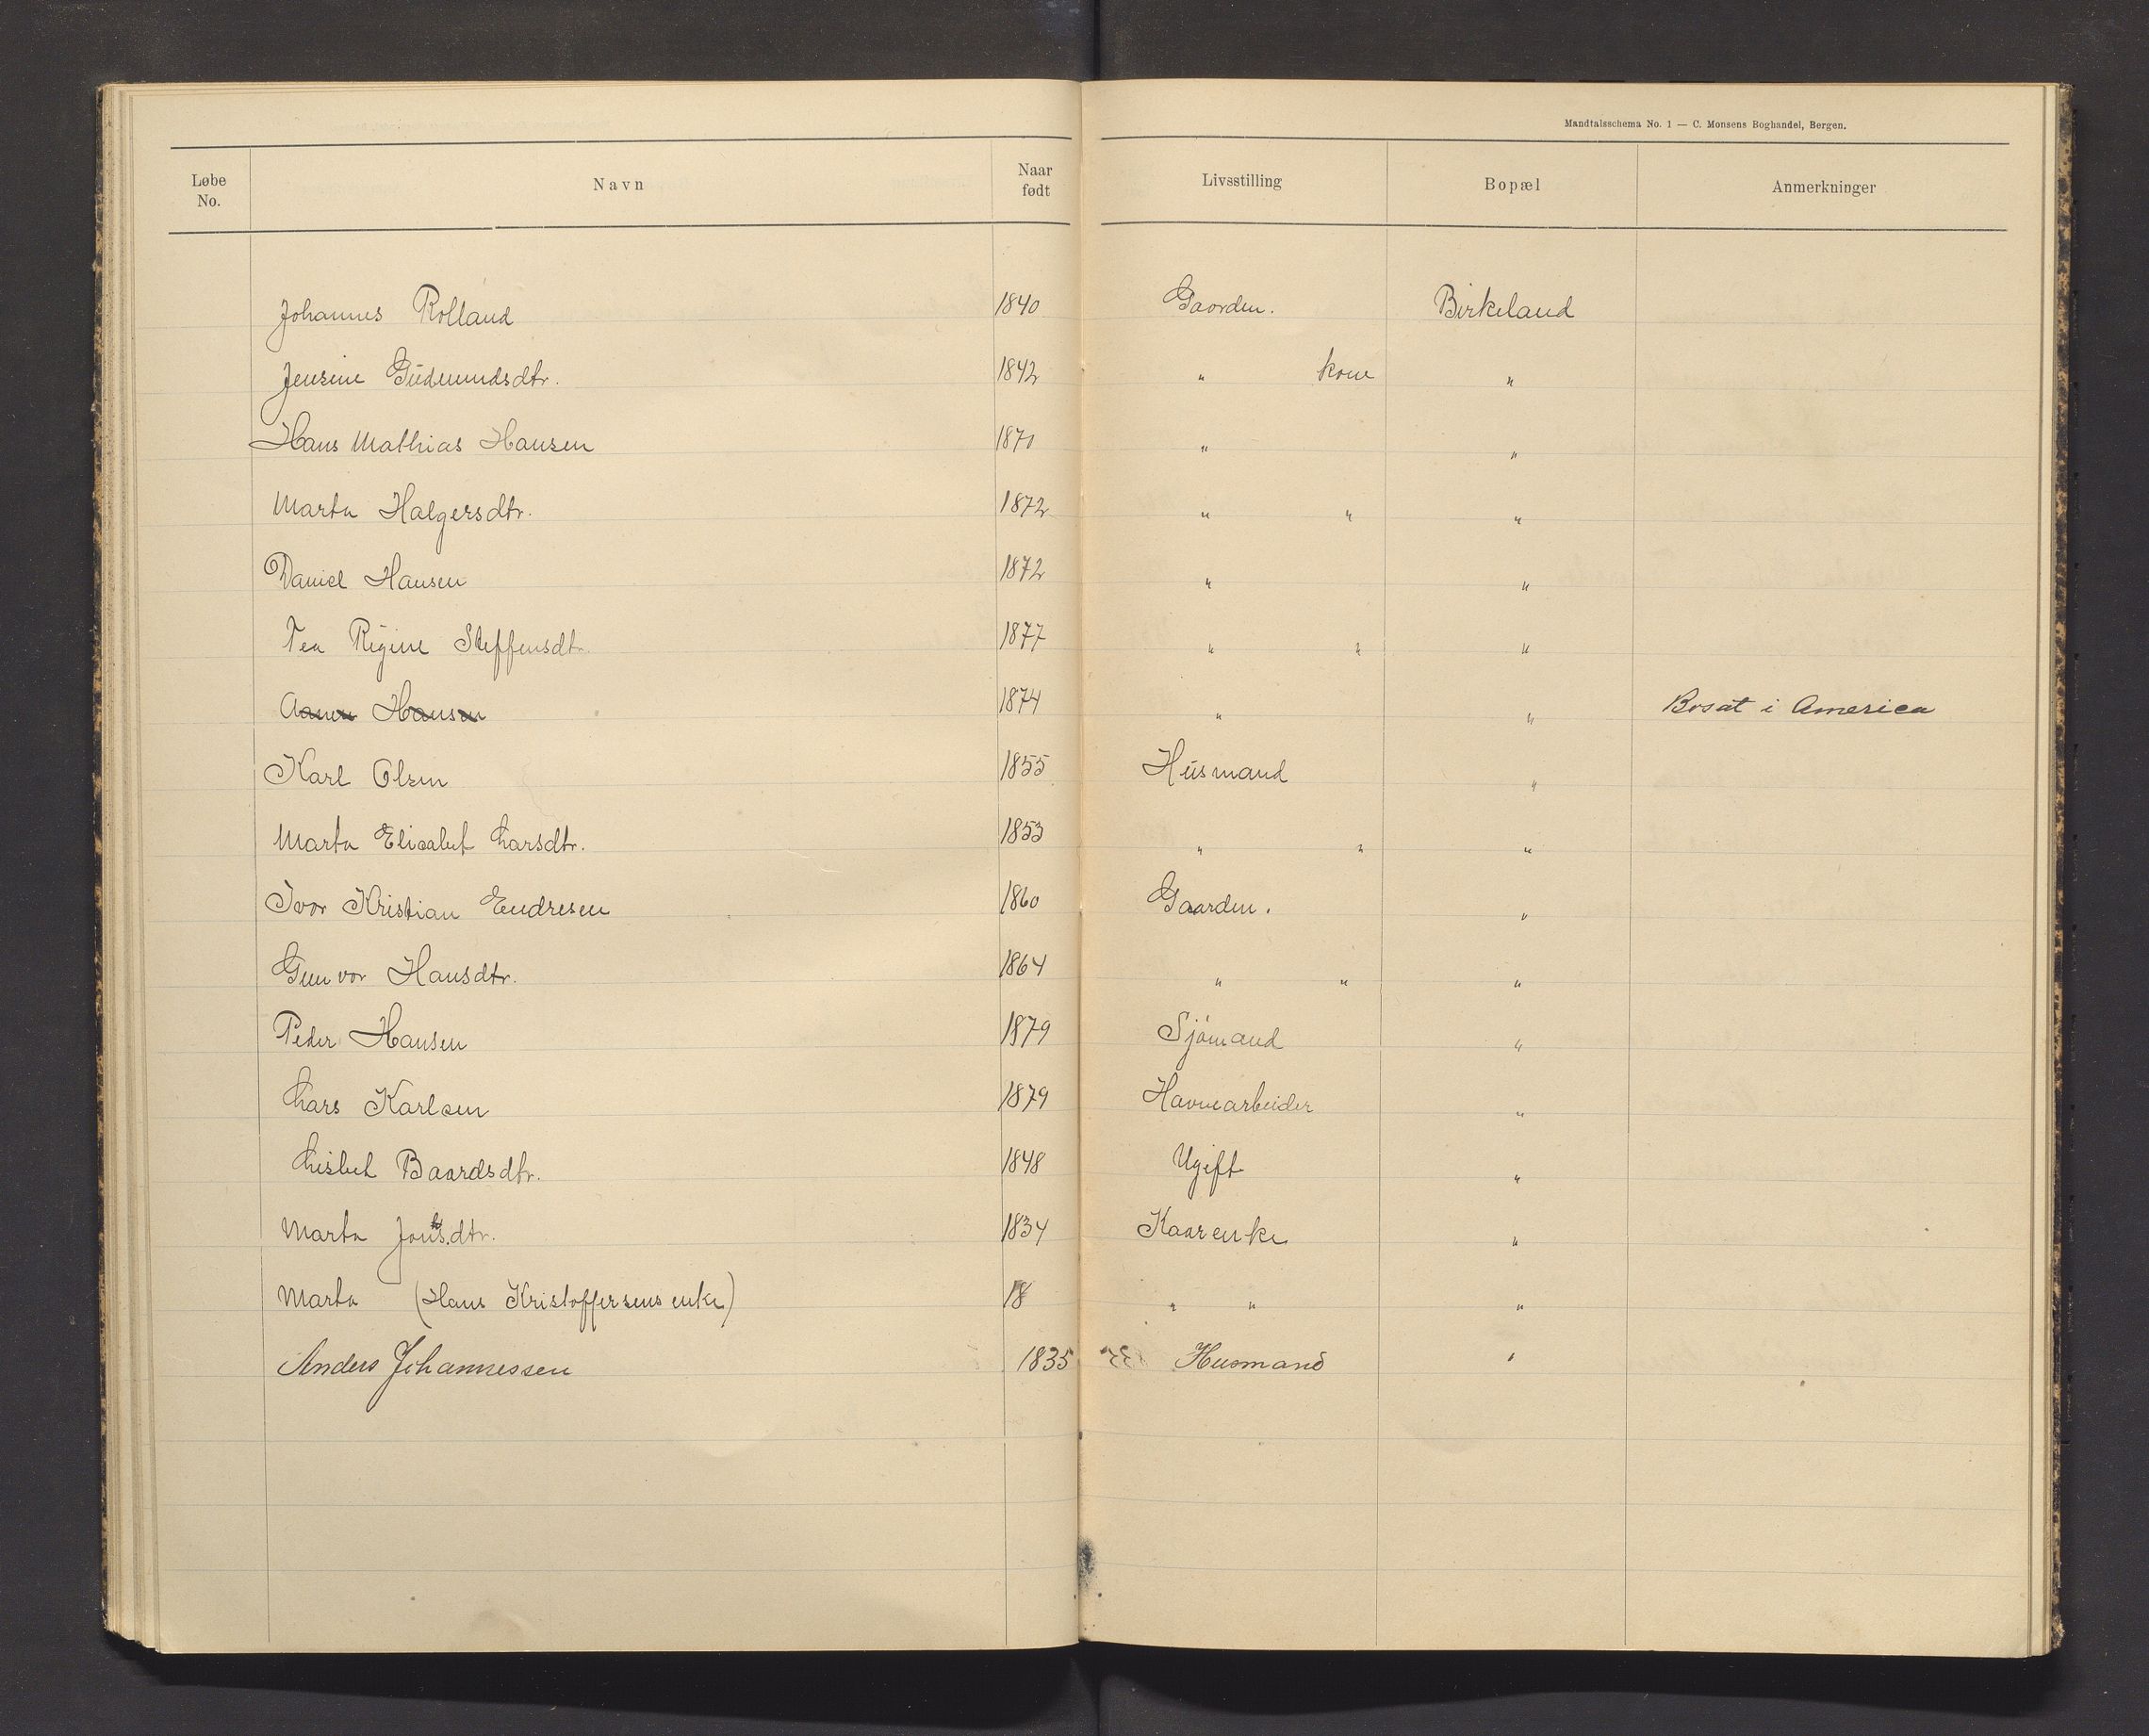 Mandtalsschema No. 1 — C. Monsens Boghandel, Bergen.
Løbe No. Navn Naar født Livsstilling Bopæl Anmerkninger
Johannes Rolland 1840 Gaarden. Birkeland
Jensine Gudmundsdtr. 1842 " kone "
Hans Mathias Hansen 1870 " "
Marta Halgersdtr. 1872 " " "
Daniel Hansen 1872 " "
Tea Regine Steffensdtr. 1877 " " "
Aanen Hansen 1874 " " Bosat i America
Karl Olsen 1855 Husmand "
Marta Elisabet Larsdtr. 1853 " " "
Ivar Kristian Endresen 1860 Gaarden. "
Gunvor Hansdtr. 1864 " " "
Peder Hansen 1879 Sjömand "
Lars Karlsen 1879 Havnearbeider "
Lisbet Baardsdtr. 1848 Ugift "
Marta Jonsdtr. 1834 Kaarenke "
Marta (Hans Kristoffersens enke) 18 " " "
Anders Johannessen 1835 Husmand "